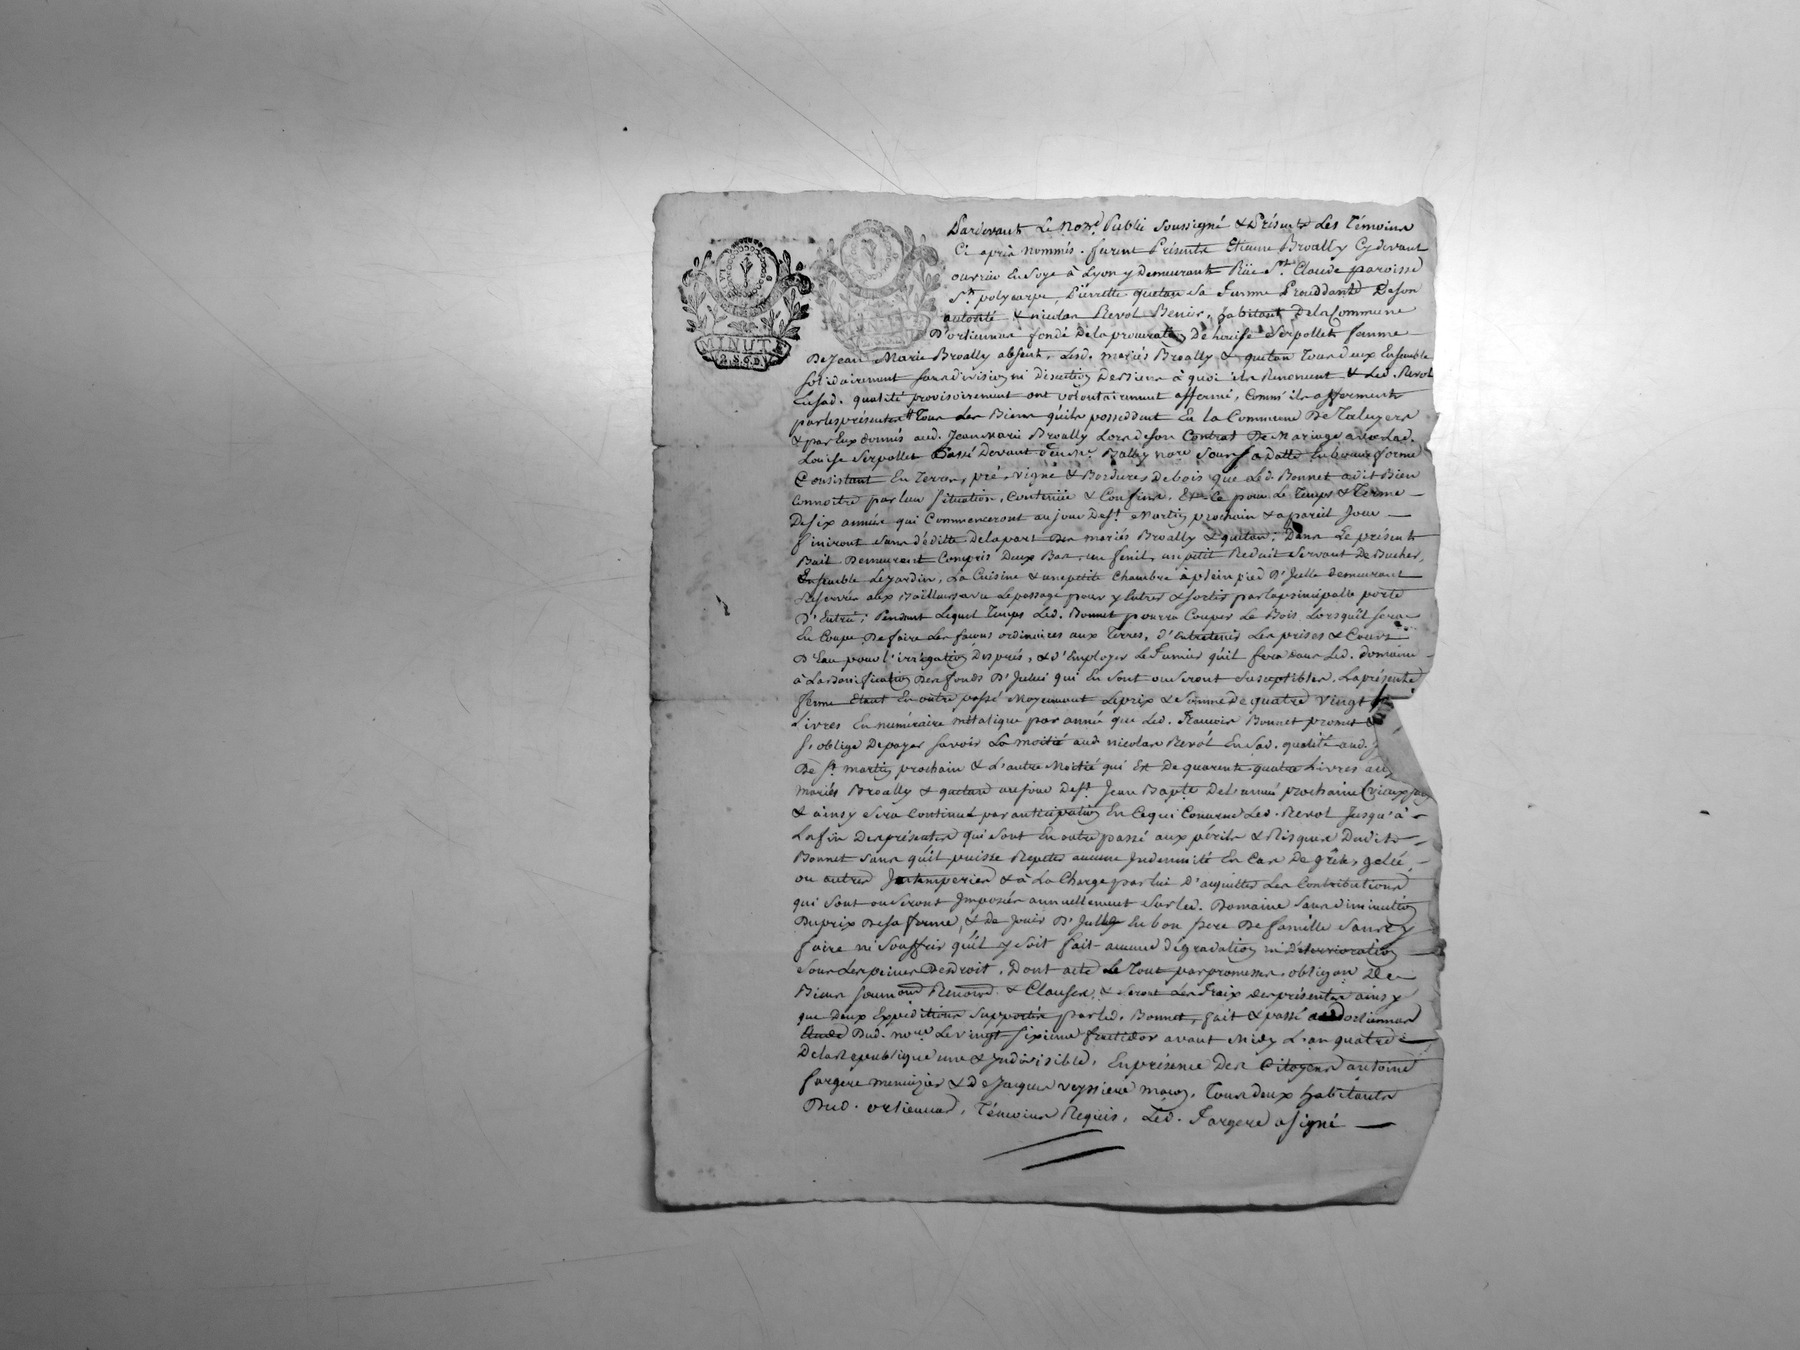 MINUTE
2. S. 6. D.
Pardevant Le Nore. Public Soussigné & Présents Les Témoins
Ci après nommés. furent Présents Etienne Broally Cy devant
ouvrier En Soye à Lyon y Demeurant Rüe St. Claude paroisse
St. polycarpe, Pierrette quetan sa femme Procédante De son
autorité & nicolas Revol Benier, habitant De la Commune
D'orliennas fondé De la procuration De Louise Serpollet femme
De Jean Marie Broally absent. Lesd. mariés Broally & quetan Tous deux Ensemble
solidairement sans division ni discution Des Biens à quoi ils Renoncent & Led. Revol
En sad. qualité provisoirement ont volontairement affermé, Comm' ils afferment
par les présentes Tous Les Biens qu'ils possedent En la Commune De Taluyers
& par Eux donnés aud. Jean Marie Broally Lors de son Contrat De Mariage avec Lad.
Louise Serpollet Passé Devant Balley nore. Sous sa Datte En bonne forme
Consistant En Terres, pré, vigne & Bordures De bois que Led. Bonnet a dit Bien
Connoitre par leur Situation, Contenüe & Confins. Et Ce pour Le Temps & Terme
De six années qui Commenceront au jour De St. Martin prochain & a pareil Jour
finiront Sans déditte De la part Des mariés Broally & quetan; Dans Le présent
Bail Demeurent Compris Deux Bas, un fenil, un petit Reduit Servant De Bucher,
Ensemble Le jardin, La Cuisine & une petite Chambre à plein pied D'Icelle demeurant
Reservées aux Bailleurs avec Le passage pour y Entrer & sortir par la principalle porte
D'Entrée; Pendant Lequel Temps Led. Bonnet pourra Couper Le Bois Lorsqu'il sera
En Coupe De faire Les façons ordinaires aux Terres, d'entretenir Les prises & Cours
D'Eau pour l'irrégation Des prés, & d'Employer Le Fumier qu'il fera Dans Led. domaine
à La Bonification Des fonds D'Icelui qui En Sont ou Seront Susceptibles. La présente
ferme Etant En outre passé Moyennant Le prix & Somme de quatre vingt
Livres En numéraire métalique par année que Led. François Bonnet promet &
s'oblige De payer Savoir La moitié aud. nicolas Revol En Sad. qualité aud. J
De St. martin prochain & L'autre Moitié qui Est De quarente quatre Livres aux
Mariés Broally & quetan au jour De St. Jean Bapte. De l'année prochaine (vieux
& ainsy Sera Continué par anticipation En Ce qui Concerne Led. Revol Jusqu'à
La fin Des présentes qui Sont En outre passé aux périls & Risques Dudit
Bonnet Sans qu'il puisse Repeter aucune Indemnité En Cas De grêle, gelée,
ou autres Intemperies & à La Charge par lui D'aquitter Les Contributions
qui Sont ou Seront Imposées annuellement Sur led. Domaine Sans diminution
Du prix De sa ferme, & de Jouir D'Icelluy En bon père De famille Sans y
faire ni Souffrir qu'il y Soit fait aucune dégradation ni déterrioration
Sous Les peines De droit. Dont acte Le Tout par promesses, obligon. De
Biens Soumond. Renond. & Clauses, & Seront Les Fraix Des présentes ainsy
que Deux Expéditions Supportés par led. Bonnet, fait & passé aud. orliennas
Etude Dud. nore. Le vingt Sixieme fructidor avant Midy L'an quatre
De la République une & Indivisible, En présence Des Citoyens antoine
fargere menuizier & De Jacques veyssiere maçon, Tous deux habitants
Dud. orliennas, Témoins Requis, Led. Fargere a signé